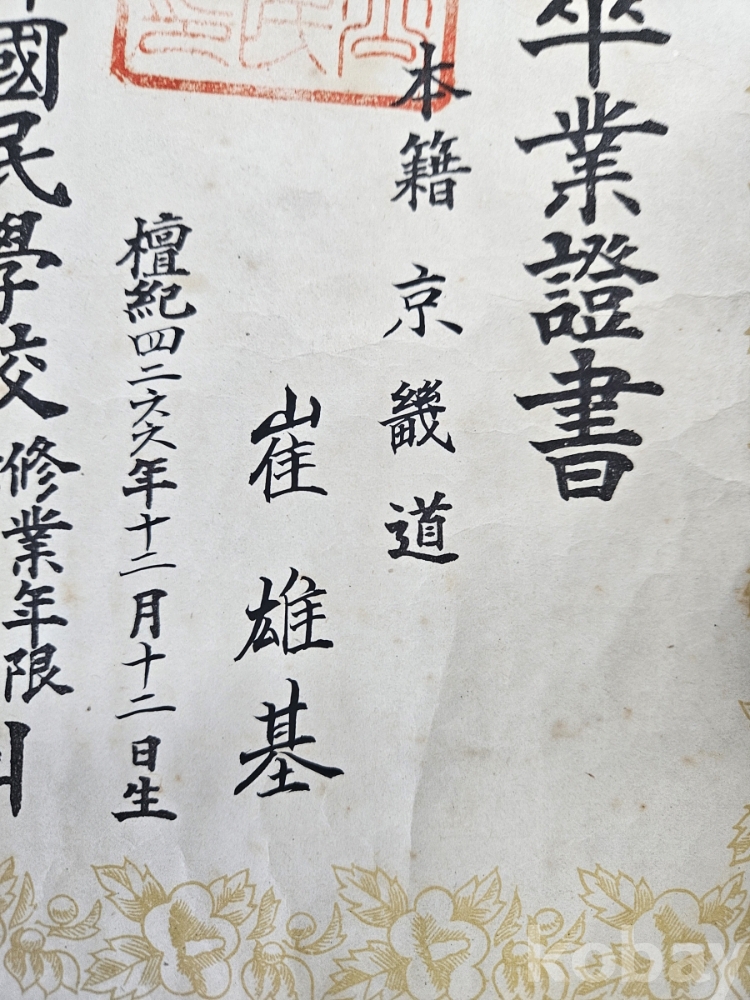 卒業證書
本籍 京畿道
崔雄基
檀紀四二六六年十二月十二日生
國民學校修業年限
kobay